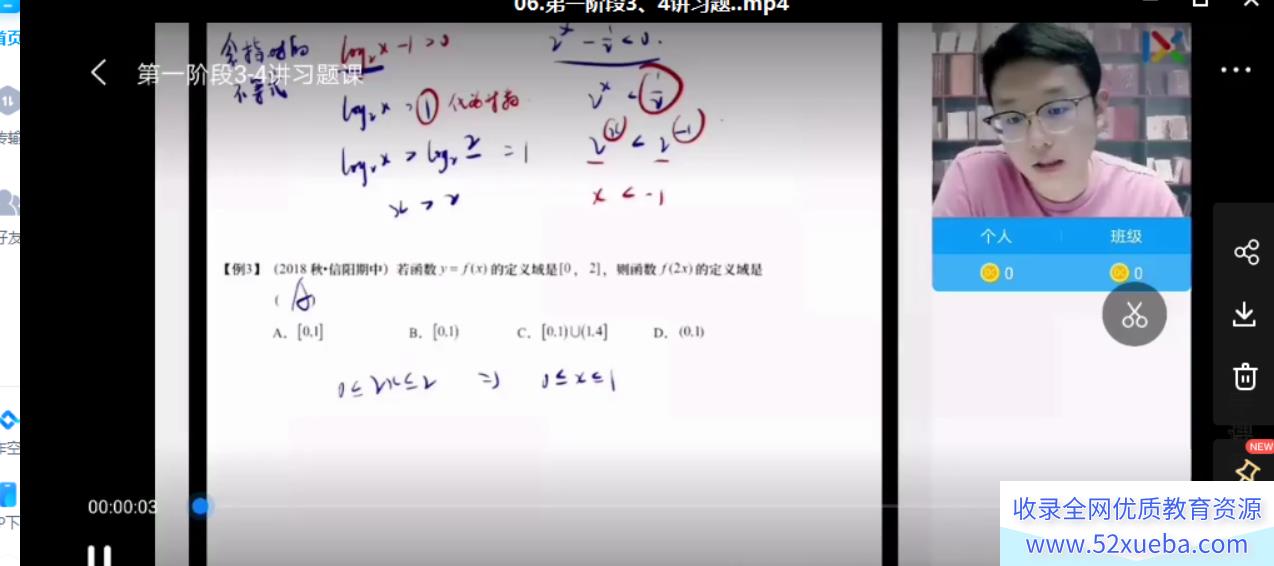 06.第一阶段3、4讲习题..mp4
首页
第一阶段3-4讲习题课
含指对的
不等式
log₂x-1>0
log₂x>1 化为对数
log₂x>log₂2=1
x>2
2ˣ-1/2<0.
2ˣ<1/2
2ˣ<2⁻¹
x<-1
【例3】（2018 秋•信阳期中）若函数 y=f(x) 的定义域是[0，2]，则函数 f(2x) 的定义域是
（A）
A. [0,1] B. [0,1) C. [0,1)∪(1,4] D. (0,1)
0≤2x≤2 ⇒ 0≤x≤1
个人 班级
0 0
传输
好友
NEW
00:00:03
收录全网优质教育资源
www.52xueba.com